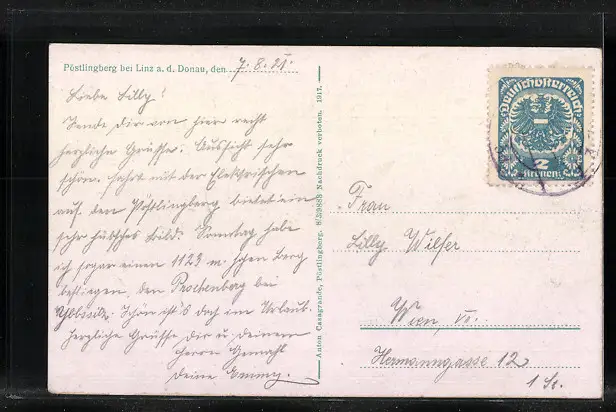 Pöstlingberg bei Linz a. d. Donau, den 7. 8. 21.
Liebe Lilly!
Sende Dir von hier recht
herzliche Grüsse. Aussicht sehr
schön. Fahrt mit der Elektrischen
auf den Pöstlingberg bietet ein
sehr hübsches Bild. Sonntag habe
ich sogar einen 1123 m. hohen Berg
bestiegen, den Prochenberg bei
Ybbsitz. Schön ist's doch im Urlaub.
Herzliche Grüsse Dir u. deinem
Herrn Gemahl
Deine
Anton Casagrande, Pöstlingberg. Nachdruck verboten. 1917.
Deutschösterreich
2
Kronen
Frau
Lilly Wilfer
Wien, VII.
Hermanngasse 12
1 St.